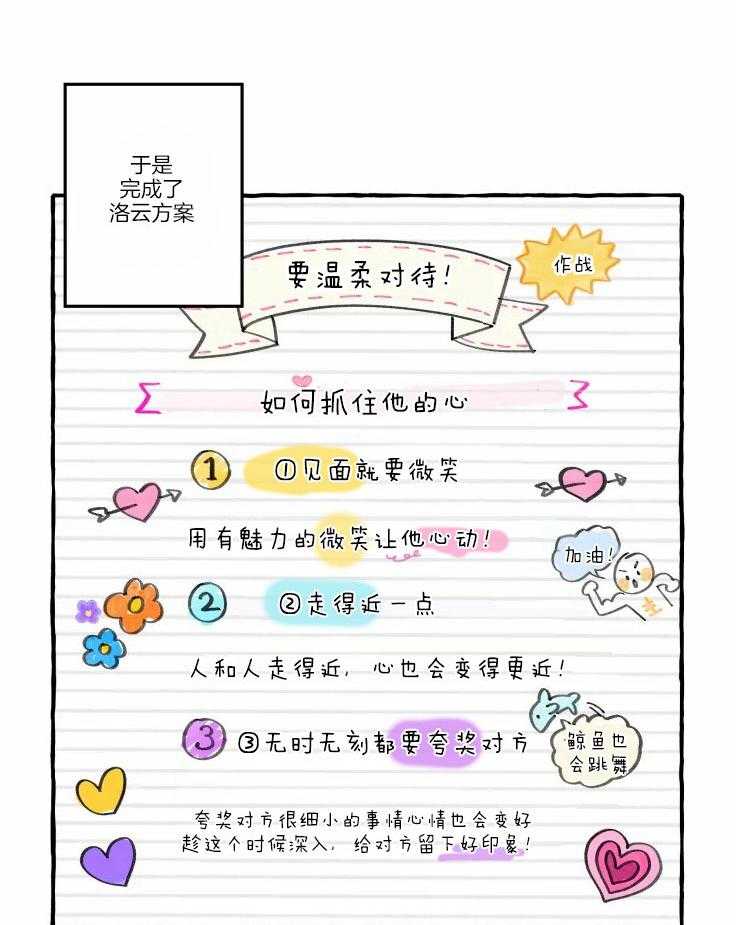 于是
完成了
洛云方案
要温柔对待!
作战
如何抓住他的心
1 ①见面就要微笑
用有魅力的微笑让他心动!
加油!
2 ②走得近一点
人和人走得近, 心也会变得更近!
3 ③无时无刻都要夸奖对方
鲸鱼也
会跳舞
夸奖对方很细小的事情心情也会变好
趁这个时候深入, 给对方留下好印象!